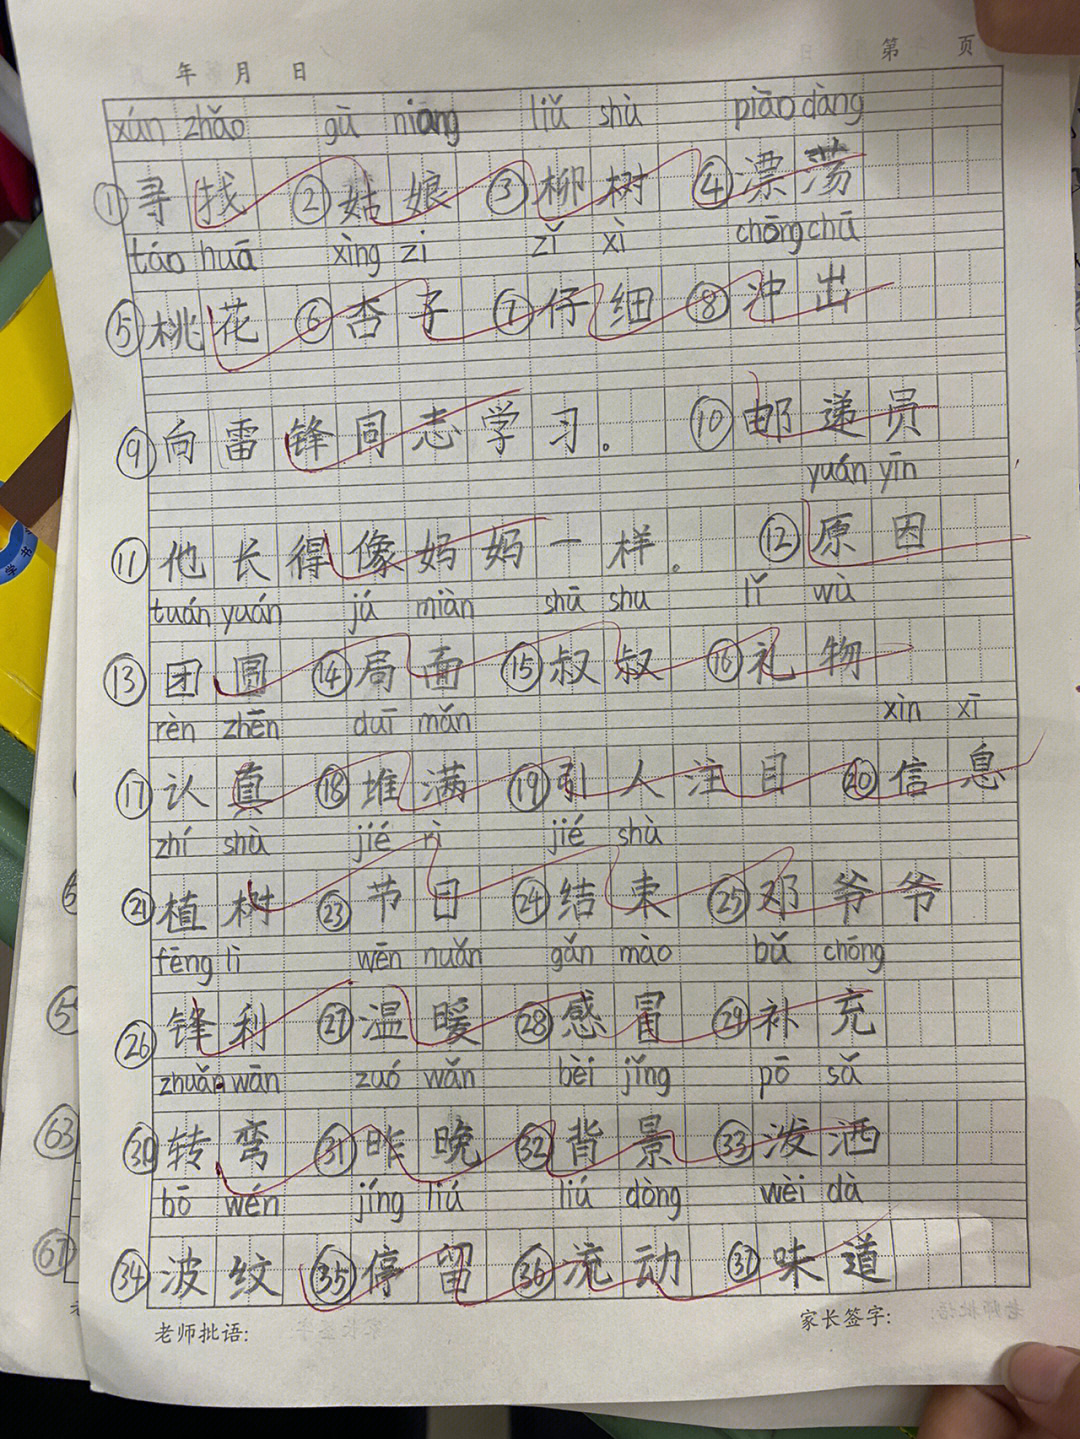 年 月 日 第 页
xún zhǎo gū niang liǔ shù piāo dàng
①寻找 ②姑娘 ③柳树 ④漂荡
táo huā xìng zi zǐ xì chōng chū
⑤桃花 ⑥杏子 ⑦仔细 ⑧冲出
⑨向雷锋同志学习。 ⑩邮递员
yuán yīn
⑪他长得像妈妈一样。 ⑫原因
tuán yuán jú miàn shū shu lǐ wù
⑬团圆 ⑭局面 ⑮叔叔 ⑯礼物
rèn zhēn duī mǎn xìn xī
⑰认真 ⑱堆满 ⑲引人注目 ⑳信息
zhí shù jié rì jié shù
㉑植树 ㉓节日 ㉔结束 ㉕邓爷爷
fēng lì wēn nuǎn gǎn mào bǔ chōng
㉖锋利 ㉗温暖 ㉘感冒 ㉙补充
zhuǎn wān zuó wǎn bèi jǐng pō sǎ
㉚转弯 ㉛昨晚 ㉜背景 ㉝泼洒
bō wén jíng liú liú dòng wèi dà
㉞波纹 ㉟停留 ㊱流动 ㊲味道
老师批语: 家长签字:
63
67